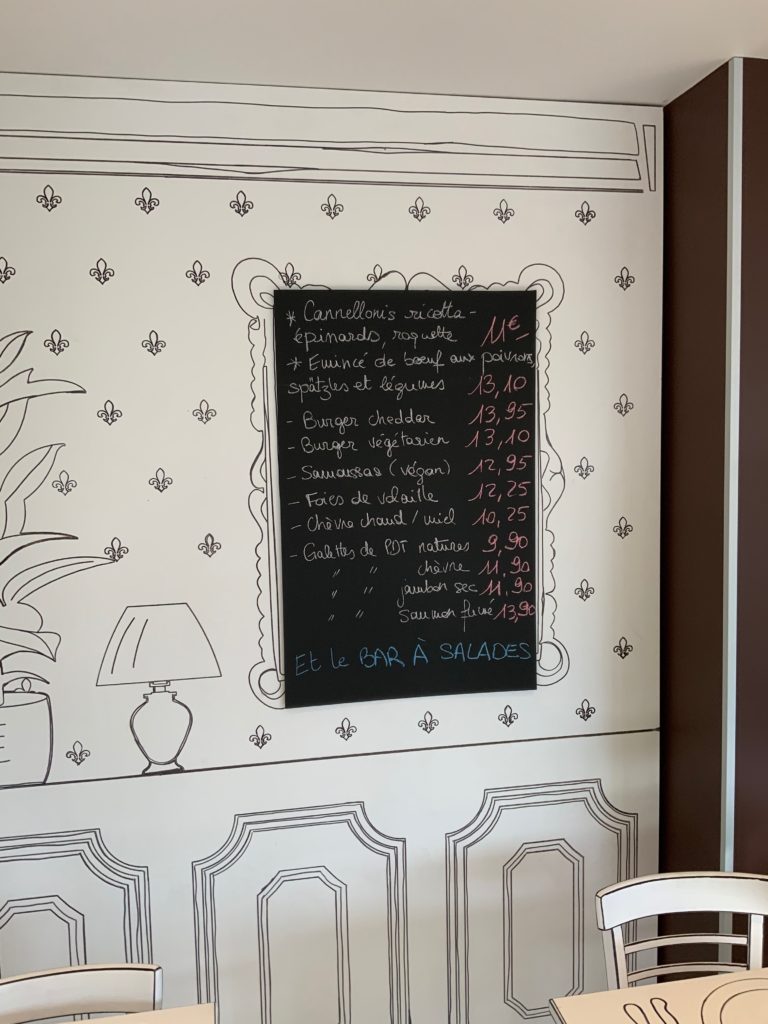 * Cannellonis ricotta -
épinards, roquette 11€-
* Emincé de bœuf aux poivrons,
spätzles et légumes 13,10
- Burger cheddar 13,95
- Burger végétarien 13,10
- Samoussas (végan) 12,95
- Foies de volaille 12,25
- Chèvre chaud / miel 10,25
- Galettes de PDT natures 9,90
" " chèvre 11,90
" " jambon sec 11,90
" " saumon fumé 13,90
Et le BAR À SALADES